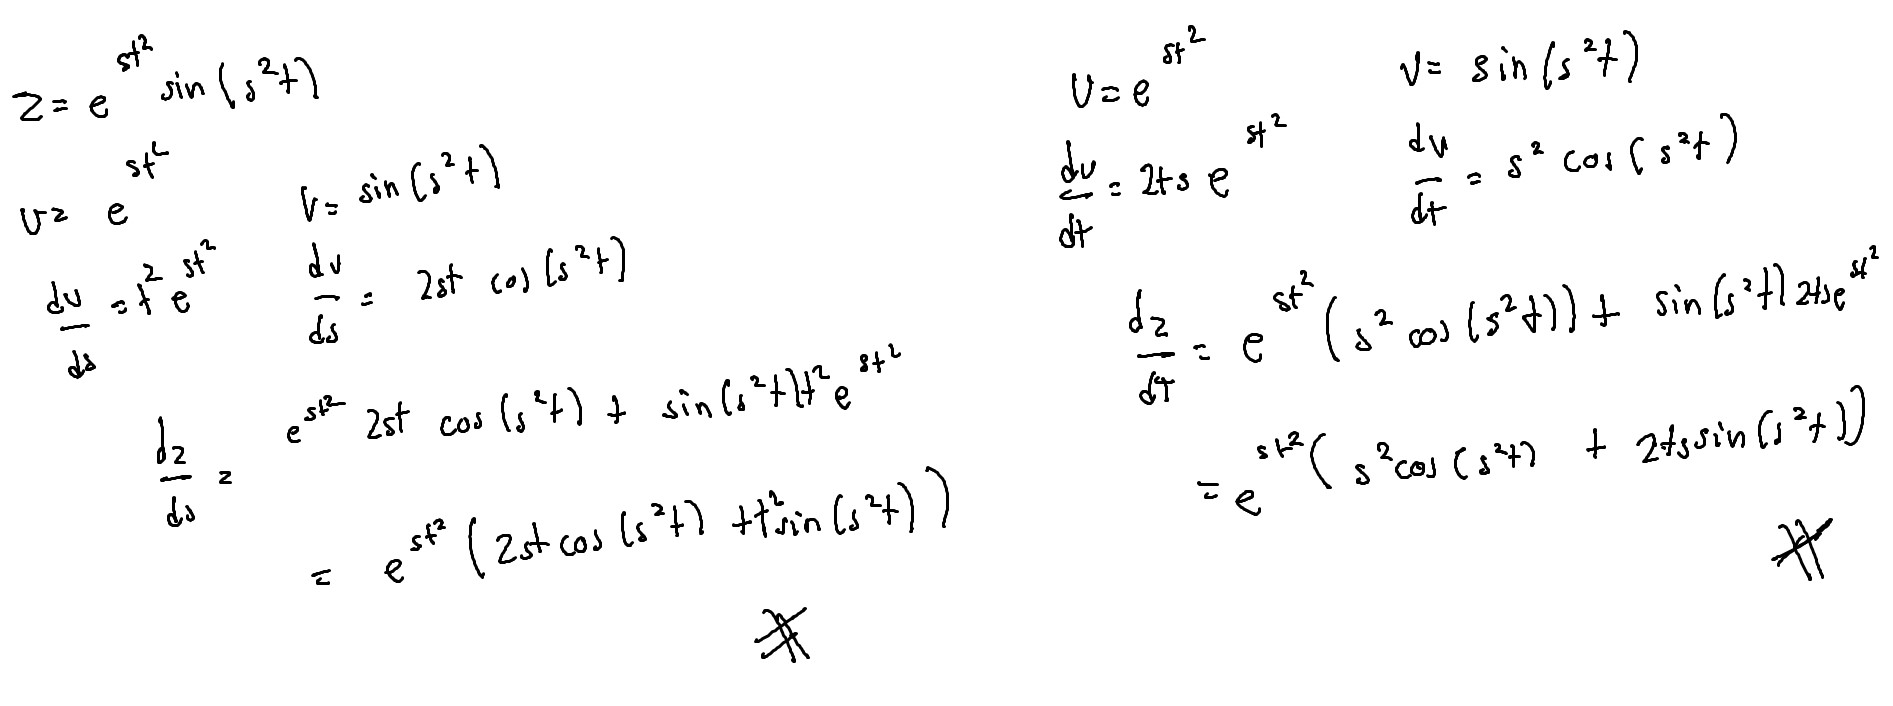 z = e^{st^2} sin(s^2t)
u = e^{st^2}    v = sin(s^2t)
du/ds = t^2 e^{st^2}    dv/ds = 2st cos(s^2t)
dz/ds = e^{st^2} 2st cos(s^2t) + sin(s^2t) t^2 e^{st^2}
= e^{st^2} (2st cos(s^2t) + t^2 sin(s^2t))
#
u = e^{st^2}    v = sin(s^2t)
du/dt = 2ts e^{st^2}    dv/dt = s^2 cos(s^2t)
dz/dt = e^{st^2} (s^2 cos(s^2t)) + sin(s^2t) 2ts e^{st^2}
= e^{st^2} (s^2 cos(s^2t) + 2ts sin(s^2t))
#